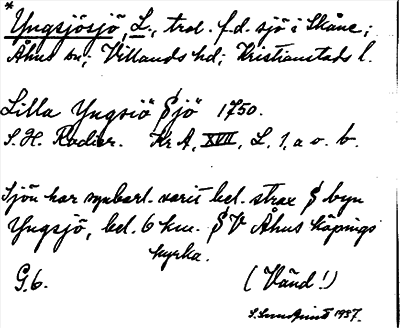 * Yngsjösjö, L., trol. f.d. sjö i Skåne;
Åhus sn; Villands hd; Kristianstads l.
Lilla Yngsiö Sjö 1750.
S. H. Rodier. Kr A, XVII, L. 1, a o. b.
Sjön har uppenbarl. varit bel. strax S byn
Yngsjö, bel. 6 km. SV Åhus köpings
kyrka.
G.6. (Vänd!)
1937.